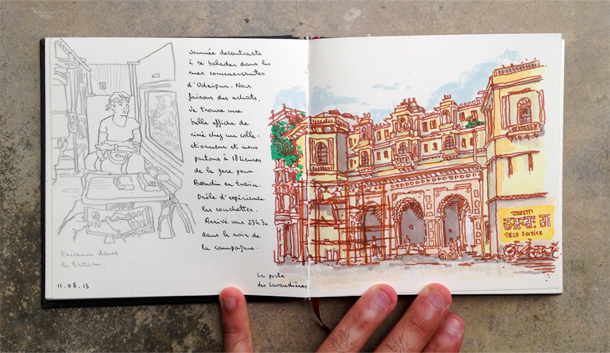 Journée decontracte
à se balader dans les
rues commerçantes
d'Udaipur. Nous
faisons des achats.
Je trouve une
belle affiche de
ciné chez un colle-
ctionneur et nous
partons à 18 heures
de la gare pour
en train.
Drôle d'expérience
les couchettes.
Arrivé vers 23h30
dans le noir de
la campagne.
dans
le train.
11.08.13
La porte
des Lavandières